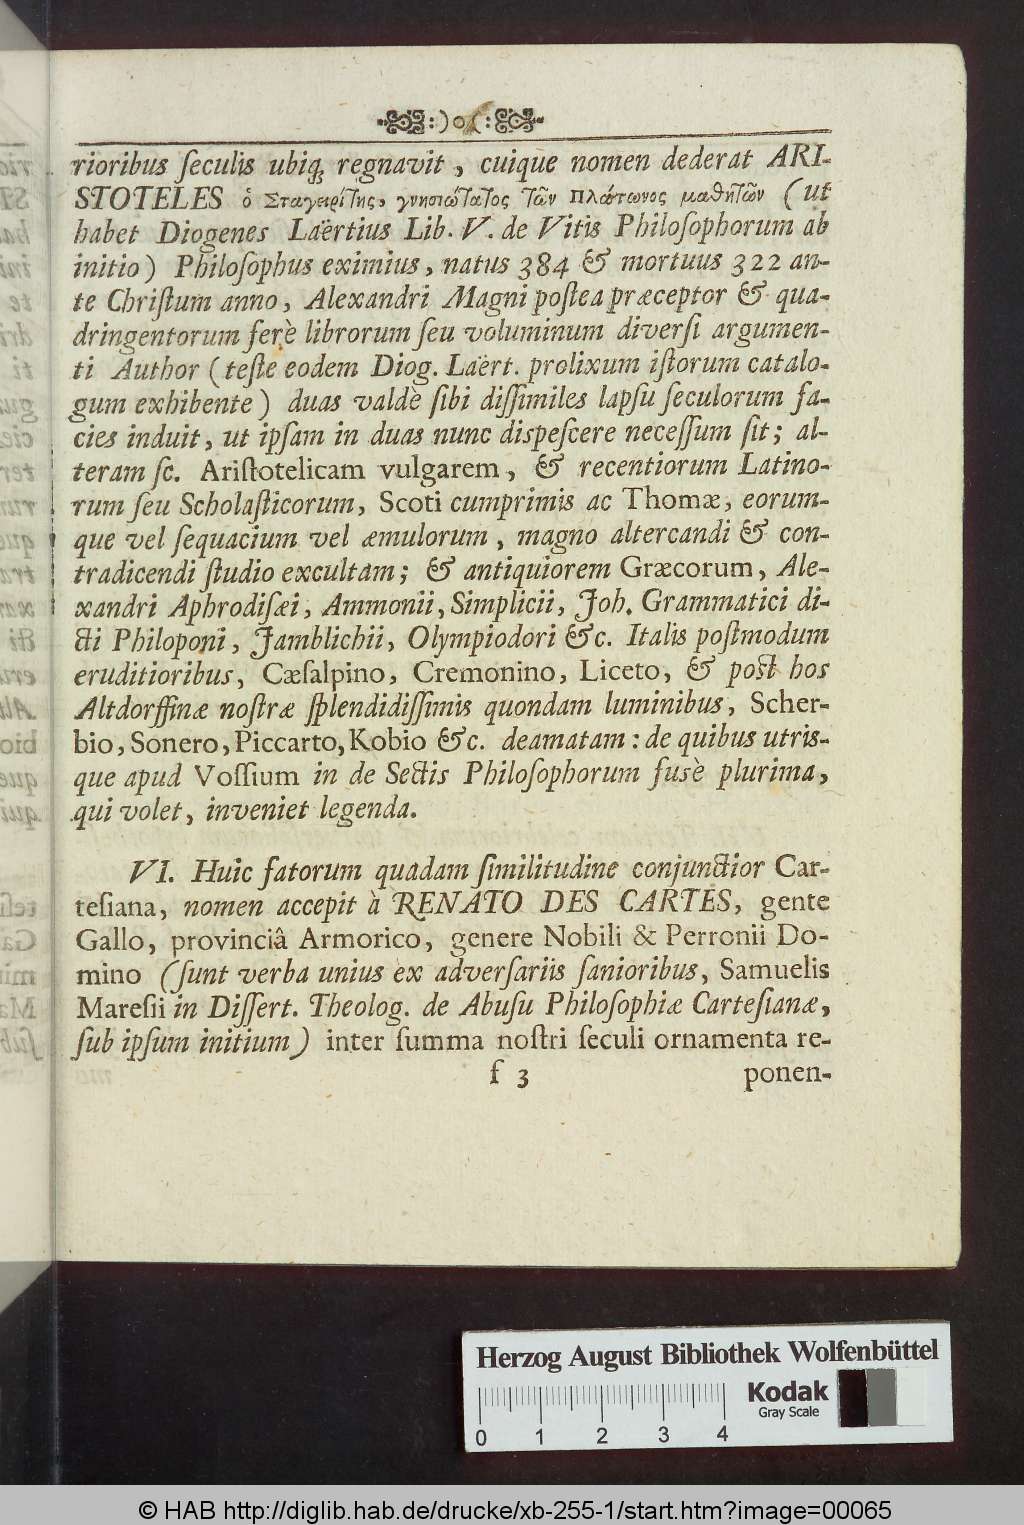 :)o(:
rioribus ſeculis ubiq; regnavit, cuique nomen dederat ARI-
STOTELES ὁ Σταγειρίτης, γνησιώτατος τῶν Πλάτωνος μαθητῶν (ut
habet Diogenes Laërtius Lib. V. de Vitis Philoſophorum ab
initio) Philoſophus eximius, natus 384 & mortuus 322 an-
te Chriſtum anno, Alexandri Magni poſtea præceptor & qua-
dringentorum ferè librorum ſeu voluminum diverſi argumen-
ti Author (teſte eodem Diog. Laërt. prolixum iſtorum catalo-
gum exhibente) duas valdè ſibi diſſimiles lapſu ſeculorum fa-
cies induit, ut ipſam in duas nunc diſpeſcere neceſſum ſit; al-
teram ſc. Ariſtotelicam vulgarem, & recentiorum Latino-
rum ſeu Scholaſticorum, Scoti cumprimis ac Thomæ, eorum-
que vel ſequacium vel æmulorum, magno altercandi & con-
tradicendi ſtudio excultam; & antiquiorem Græcorum, Ale-
xandri Aphrodiſæi, Ammonii, Simplicii, Joh. Grammatici di-
cti Philoponi, Jamblichii, Olympiodori &c. Italis poſtmodum
eruditioribus, Cæſalpino, Cremonino, Liceto, & poſt hos
Altdorffinæ noſtræ ſplendidiſſimis quondam luminibus, Scher-
bio, Sonero, Piccarto, Kobio &c. deamatam: de quibus utris-
que apud Voſſium in de Sectis Philoſophorum fusè plurima,
qui volet, inveniet legenda.
VI. Huic fatorum quadam ſimilitudine conjunctior Car-
teſiana, nomen accepit à RENATO DES CARTES, gente
Gallo, provinciâ Armorico, genere Nobili & Perronii Do-
mino (ſunt verba unius ex adverſariis ſanioribus, Samuelis
Mareſii in Diſſert. Theolog. de Abuſu Philoſophiæ Carteſianæ,
ſub ipſum initium) inter ſumma noſtri ſeculi ornamenta re-
f 3 ponen-
Herzog August Bibliothek Wolfenbüttel
Kodak
Gray Scale
0 1 2 3 4
© HAB http://diglib.hab.de/drucke/xb-255-1/start.htm?image=00065